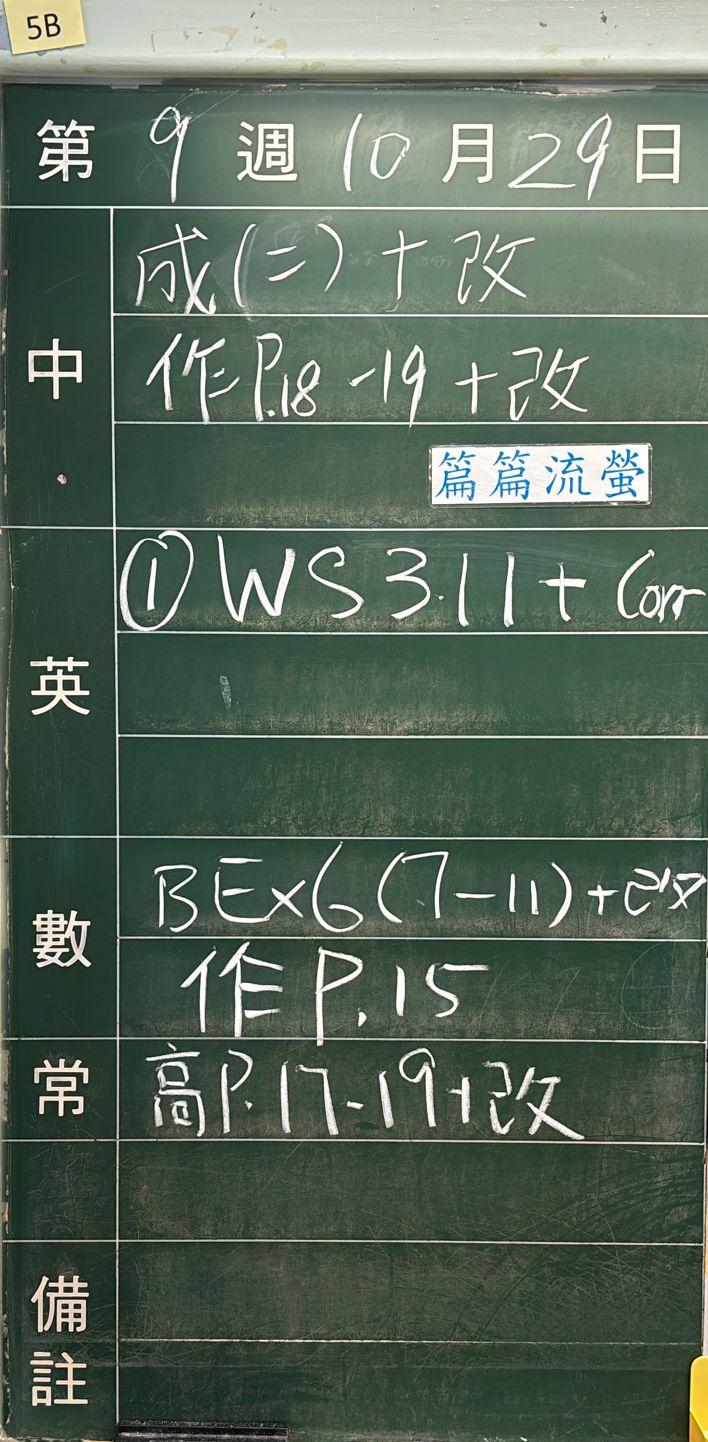 5B
第9週10月29日
中
成(二)+改
作P.18-19+改
篇篇流螢
英
①WS 3.11+Corr
數
BEx6(7-11)+改
作P.15
常
高P.17-19+改
備註